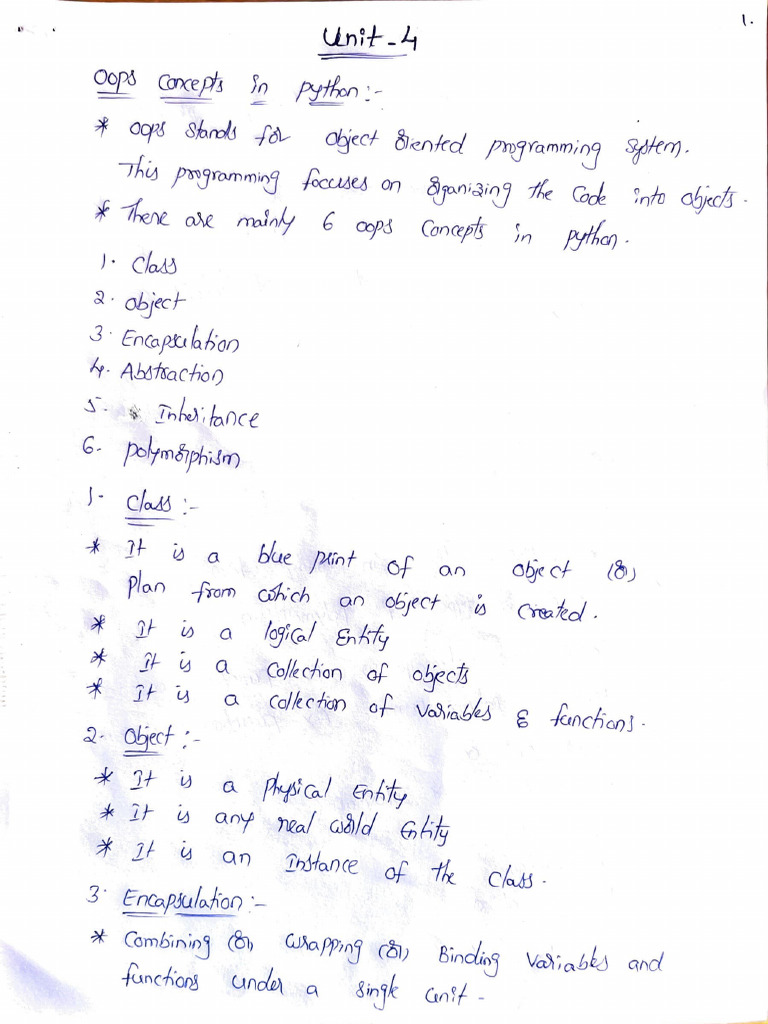 1.
Unit-4
OOPS Concepts in python:-
* OOPS stands for object oriented programming system.
This programming focuses on organizing the code into objects.
* There are mainly 6 oops concepts in python.
1. Class
2. Object
3. Encapsulation
4. Abstraction
5. Inheritance
6. polymorphism
1. Class:-
* It is a blue print of an object (or)
Plan from which an object is created.
* It is a logical Entity
* It is a collection of objects
* It is a collection of variables & functions.
2. Object:-
* It is a physical Entity
* It is any real world Entity
* It is an Instance of the class.
3. Encapsulation:-
* Combining (or) wrapping (or) Binding variables and
functions under a single unit.